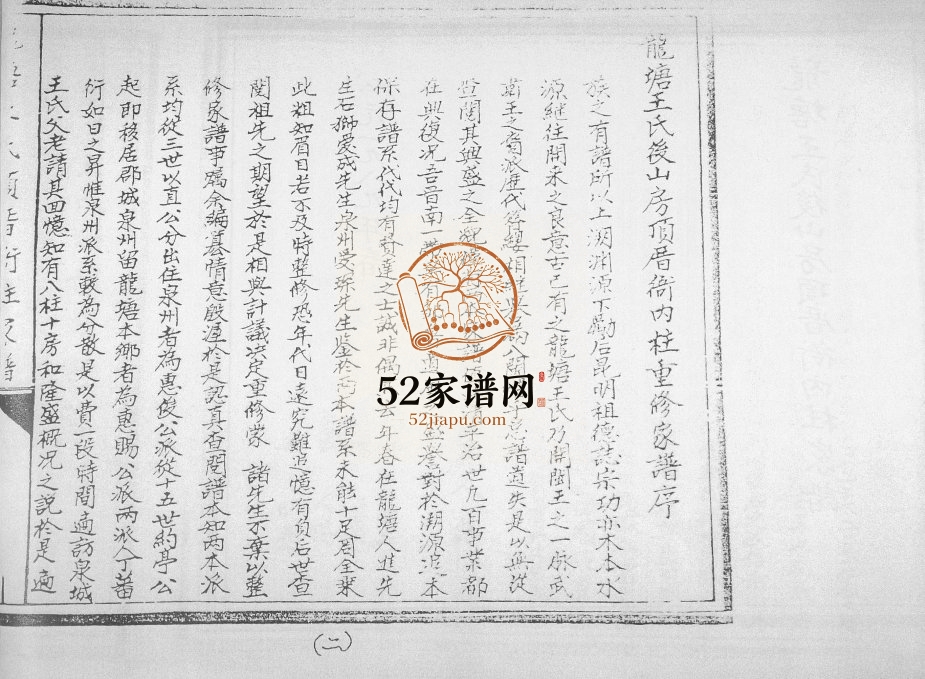 龍塘王氏後山房頂厝衙內柱重修家譜序
族之有譜所以上溯淵源下勵后昆明祖德誌宗功亦木本水
源繼往開來之良意古已有之龍塘王氏乃開閩王之一脉武
肅王之裔派歷代簪纓相 八 譜遺失是以無從
登閱其興盛之全 世凡百事業都
在興復况吾晉南一帶 有 對於溯源 本
保存譜系代代均有賢達之士誠非偶 去年春在龍塘人進先
生石獅愛成先生泉州受琛先生鑒於兩本譜系未能十足周全米
此粗知眉目若不及時整修恐年代日遠究難追憶有負后世查
閱祖先之期望於是相與計議決定重修蒙 諸先生不棄以整
修家譜事囑余編纂情意殷渥於是認真查閱譜本知两本派
系均從三世以直公分出住泉州者為惠俊公派從十五世約亭公
起即移居郡城泉州留龍塘本鄉者為惠賜公派两派人丁蕃
衍如日之昇惟泉州派系較為分散是以費一段時間適訪泉城
王氏父老請其回憶知有八柱十房和隆盛概况之說於是適
(二)
52家谱网
52jiapu.com